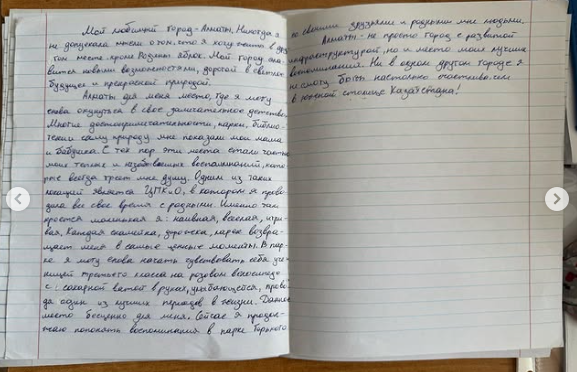 Мой любимый город - Алматы. Никогда я
не допускала мысли о том, что я могу жить в дру-
гом месте, кроме Родины яблок. Мой город сла-
вится новыми возможностями, дорогой в светлое
будущее и прекрасной природой.
Алматы для меня место, где я могу
снова окунуться в своё замечательное детство.
Многие достопримечательности, парки, библио-
теки и саму природу мне показали моя мама
и бабушка. С тех пор эти места стали частью
моих теплых и воспоминаний, кото-
рые всегда греют мне душу. Одним из таких
локаций является ЦПКиО, в котором я прово-
дила все свое время с родными. Именно там
кроется маленькая я: наивная, веселая, игри-
вая. Каждая скамейка, дорожка, парке возвра-
щает меня в самые ценные моменты. В пар-
ке я могу снова начать чувствовать себя уче-
ницей третьего класса на розовом велосипеде
с сахарной ватой в руках, улыбающейся, прово-
дя один из лучших периодов в жизни. Данное
место бесценно для меня. Сейчас я продол-
жаю пополнять воспоминания в парке Горького
со своими друзьями и родными мне людьми.
Алматы - не просто город с развитой
инфраструктурой, но и место моих лучших
воспоминаний. Ни в одном другом городе я
не смогу быть настолько счастливой, чем
в южной столице Казахстана!